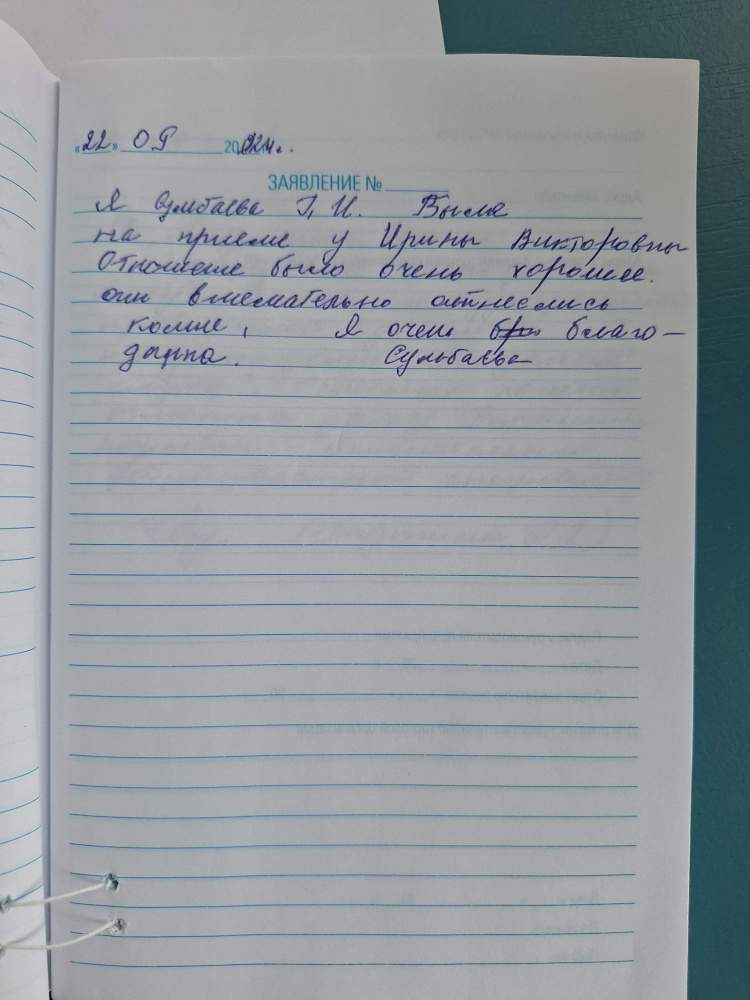 «22» 08 2024 г.
ЗАЯВЛЕНИЕ №
Я Сулбаева Г, И. Была
на приеме у Ирины Викторовны
Отношение было очень хорошее.
они внемательно отнеслись
комне, Я очень благо-
дарна. Сульбаева